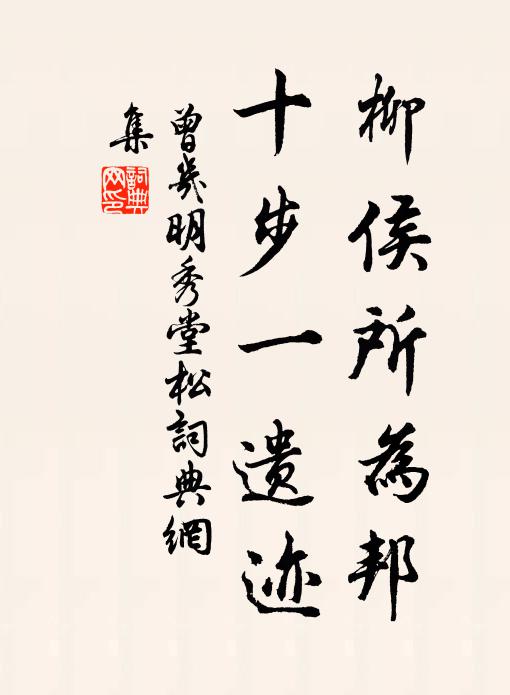 柳侯所為邦
十步一遗迹
曾幾明秀堂松詞典網
集
詞典網印